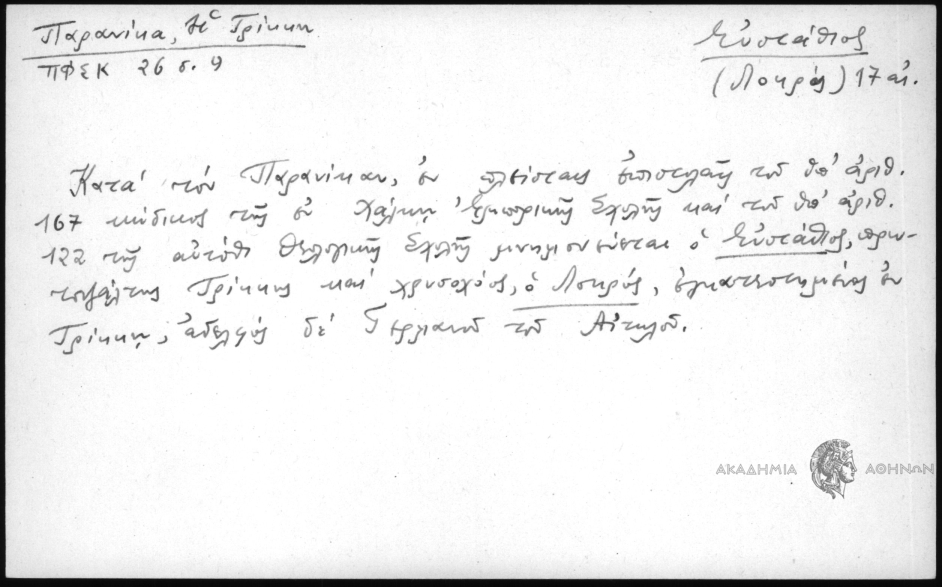 Παρανίκα, Ἡ Τρίκκη
ΠΦΣΚ 26 σ. 9
Εὐστάθιος
(Λοκρός) 17 αἰ.
Κατά τόν Παρανίκαν, ἐν πλείσταις ἐπιστολαῖς τοῦ ὑπ' ἀριθ.
167 κώδικος τῆς ἐν Χάλκῃ Ἐμπορικῆς Σχολῆς καί τοῦ ὑπ' ἀριθ.
122 τῆς αὐτόθι Θεολογικῆς Σχολῆς μνημονεύεται ὁ Εὐστάθιος, πρω-
τοψάλτης Τρίκκης καί χρυσοχόος, ὁ Λοκρός, ἐγκατεστημένος ἐν
Τρίκκῃ, ἀδελφός δέ Γερμανοῦ τοῦ Αἰτωλοῦ.
ΑΚΑΔΗΜΙΑ ΑΘΗΝΩΝ